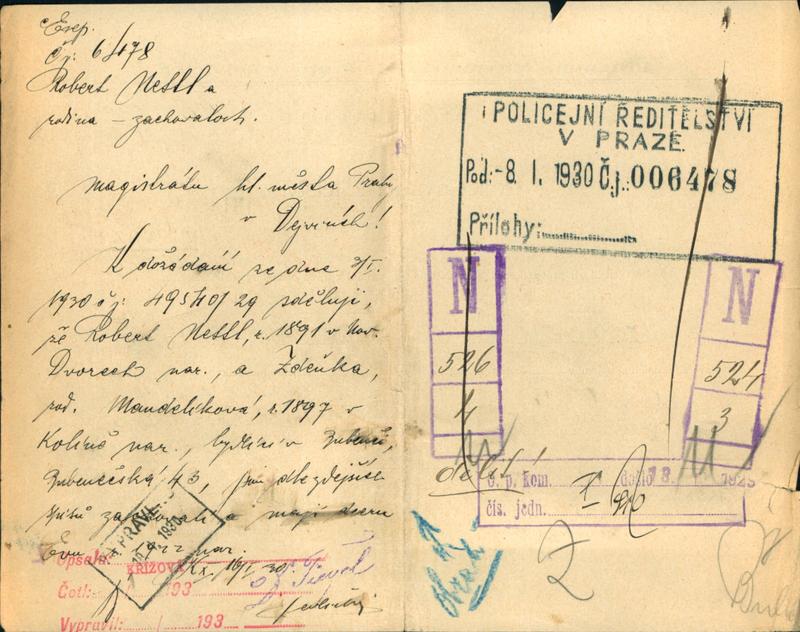 Exp.
Čj: 6478
Robert Nettl a
rodina – zachovalost.
magistrátu hl. města Prahy
v Dejvicích!
K dožádání ze dne 3/I.
1930 čj: 49540/29 sděluji,
že Robert Nettl, r. 1891 v Nov.
Dvorech nar., a Zdeňka,
roz. Mandelíková, r. 1897 v
Kolíně nar., bydlící v Bubenči,
Bubenečská 43, jsou dle zdejších
zachovalí a mají dceru
Evu 1922 nar.
V PRAZE
1930
Opsala: KŘÍŽOVÁ
16/I 30
Čotl: / 193
Vypravil: / 193
POLICEJNÍ ŘEDITELSTVÍ
V PRAZE
Pod: -8. I. 1930 Č.j.: 006478
Přílohy:
N
526
4
N
524
3
č. p. kom. došlo 13.
čís. jedn.